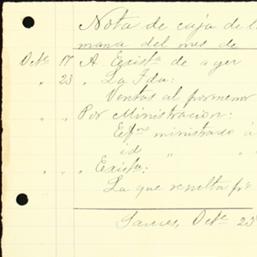 Nota de caja de l
mana del mes de
Octe. 17 A Exista. de ayer
" 23 " La Fda:
Ventas al pormenor
" " Por Ministracion:
ministrado á
id " "
" " Exista:
La que resulta por
Octe. 23